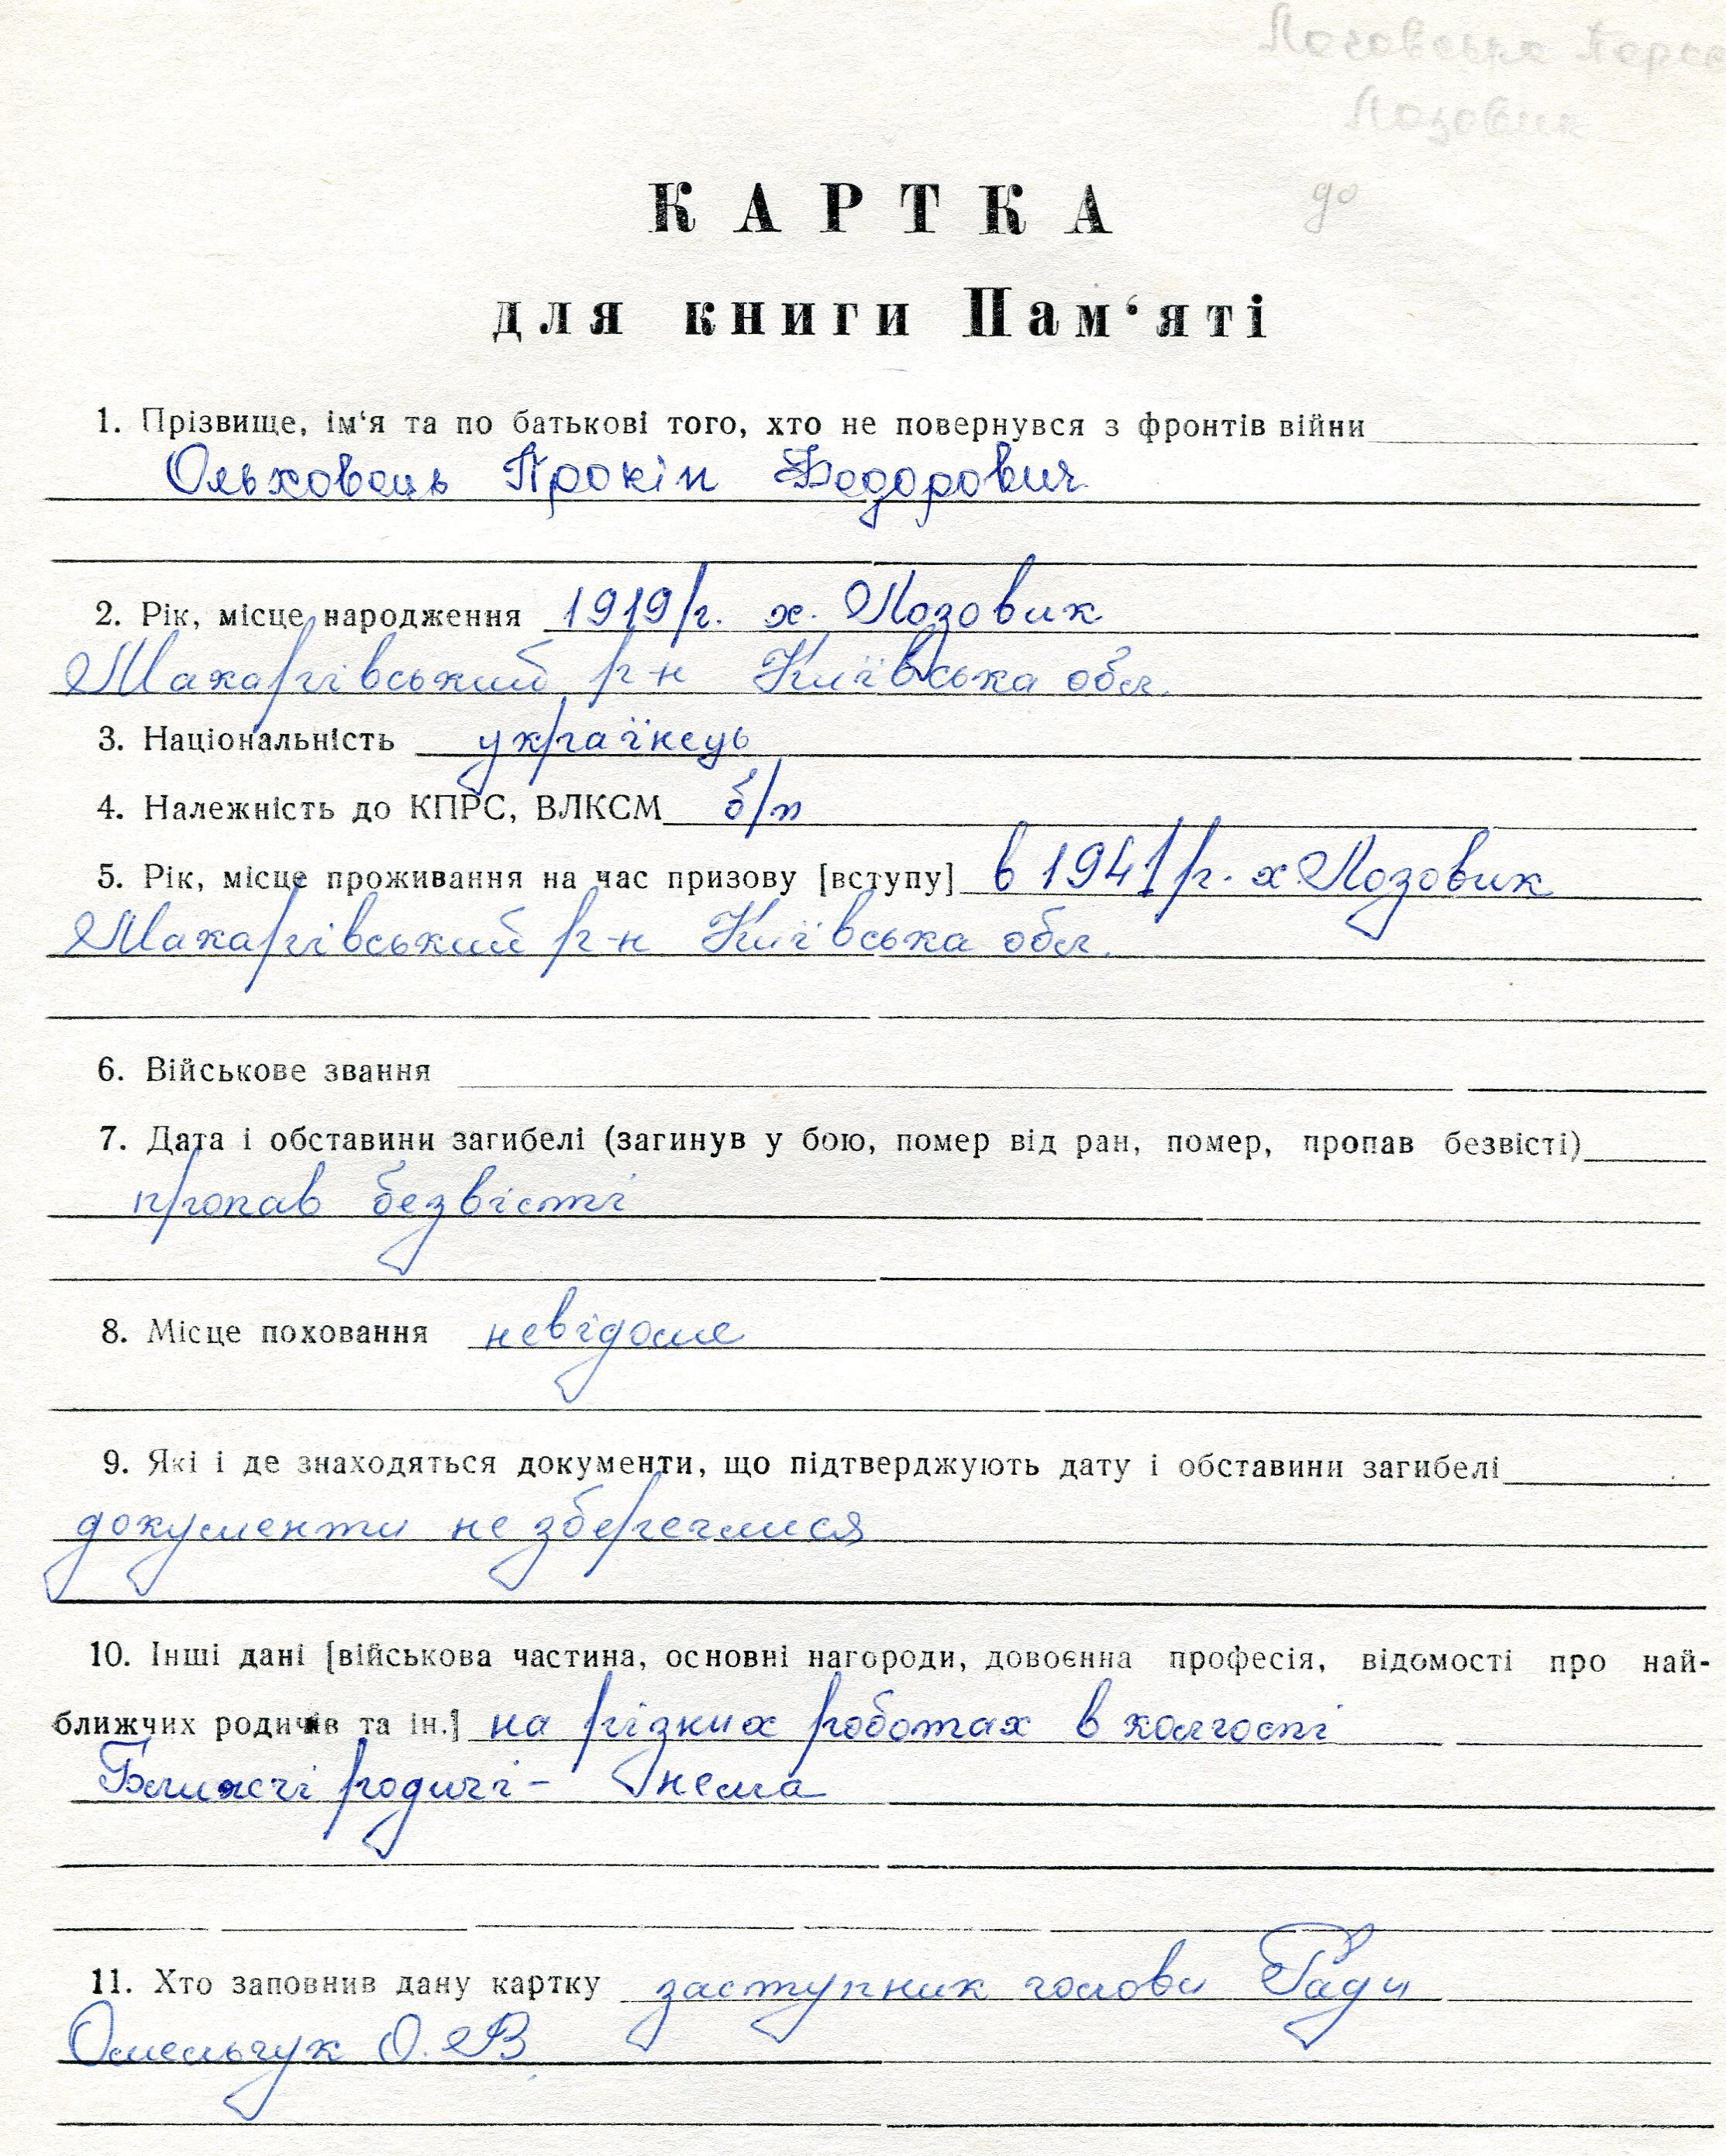 Лозовик
до
КАРТКА
для книги Пам‘яті
1. Прізвище, ім‘я та по батькові того, хто не повернувся з фронтів війни
Ольховець Прокіп Федорович
2. Рік, місце народження 1919 р. х. Лозовик
Макарівський р-н Київська обл.
3. Національність українець
4. Належність до КПРС, ВЛКСМ б/п
5. Рік, місце проживання на час призову [вступу] в 1941 р. х. Лозовик
Макарівський р-н Київська обл.
6. Військове звання
7. Дата і обставини загибелі (загинув у бою, помер від ран, помер, пропав безвісті)
пропав безвісті
8. Місце поховання невідоме
9. Які і де знаходяться документи, що підтверджують дату і обставини загибелі
документи не збереглися
10. Інші дані [військова частина, основні нагороди, довоєнна професія, відомості про най-
ближчих родичів та ін.] на різних роботах в колгоспі
Ближчі родичі – нема
11. Хто заповнив дану картку заступник голови Ради
Омельчук О. В.